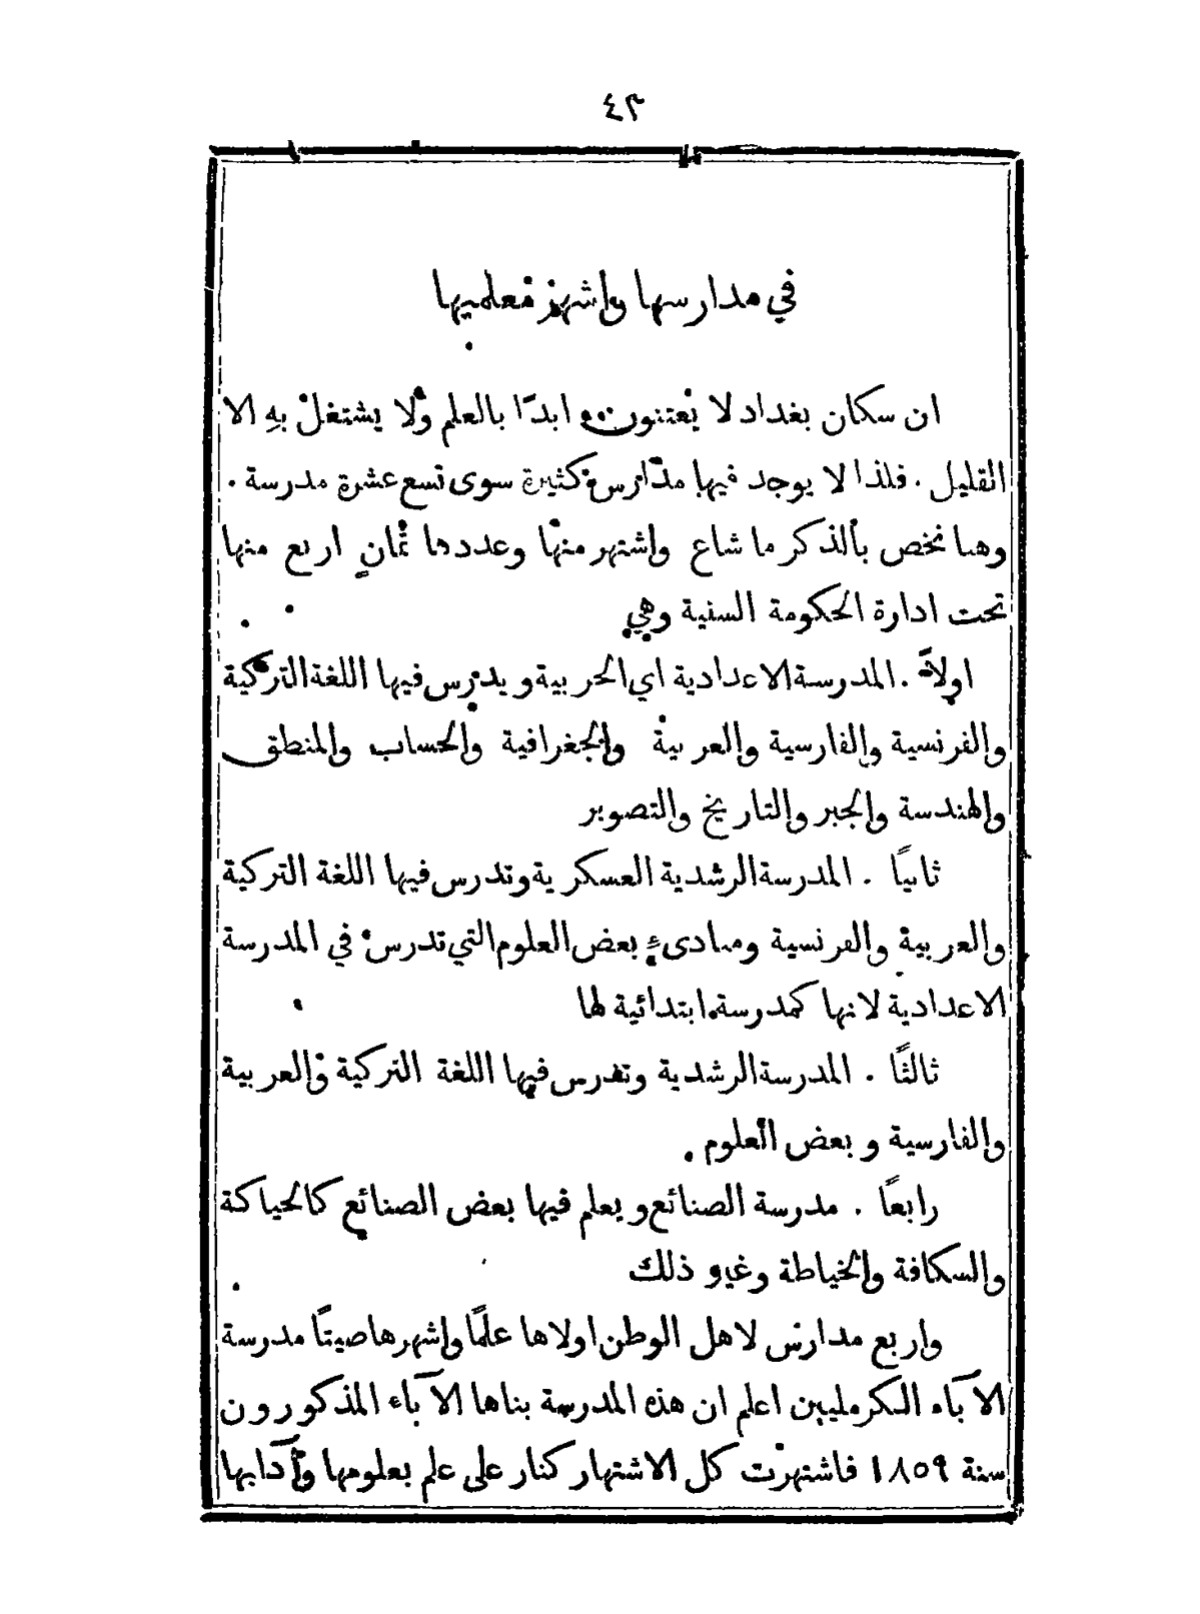 ٤٣
في مدارسها واشهر معلميها
ان سكان بغداد لا يعتنون ابدًا بالعلم ولا يشتغل بهِ الا
القليل . فلذا لا يوجد فيها مدارس كثيرة سوى تسع عشرة مدرسة .
وهنا نخص بالذكر ما شاع واشتهر منها وعددها ثمانٍ اربع منها
تحت ادارة الحكومة السنية وهي
اولاً . المدرسة الاعدادية اي الحربية ويدرس فيها اللغة التركية
والفرنسية والفارسية والعربية والجغرافية والحساب والمنطق
والهندسة والجبر والتاريخ والتصوير
ثانيًا . المدرسة الرشدية العسكرية وتدرس فيها اللغة التركية
والعربية والفرنسية ومبادىءِ بعض العلوم التي تدرس في المدرسة
الاعدادية لانها كمدرسة ابتدائية لها
ثالثًا . المدرسة الرشدية وتدرس فيها اللغة التركية والعربية
والفارسية وبعض العلوم .
رابعًا . مدرسة الصنائع ويعلم فيها بعض الصنائع كالحياكة
والسكافة والخياطة وغير ذلك
واربع مدارس لاهل الوطن اولاها علمًا واشهرها صيتًا مدرسة
الآباء الكرمليين اعلم ان هذه المدرسة بناها الآباء المذكورون
سنة ١٨٥٩ فاشتهرت كل الاشتهار كنار على علم بعلومها وآدابها